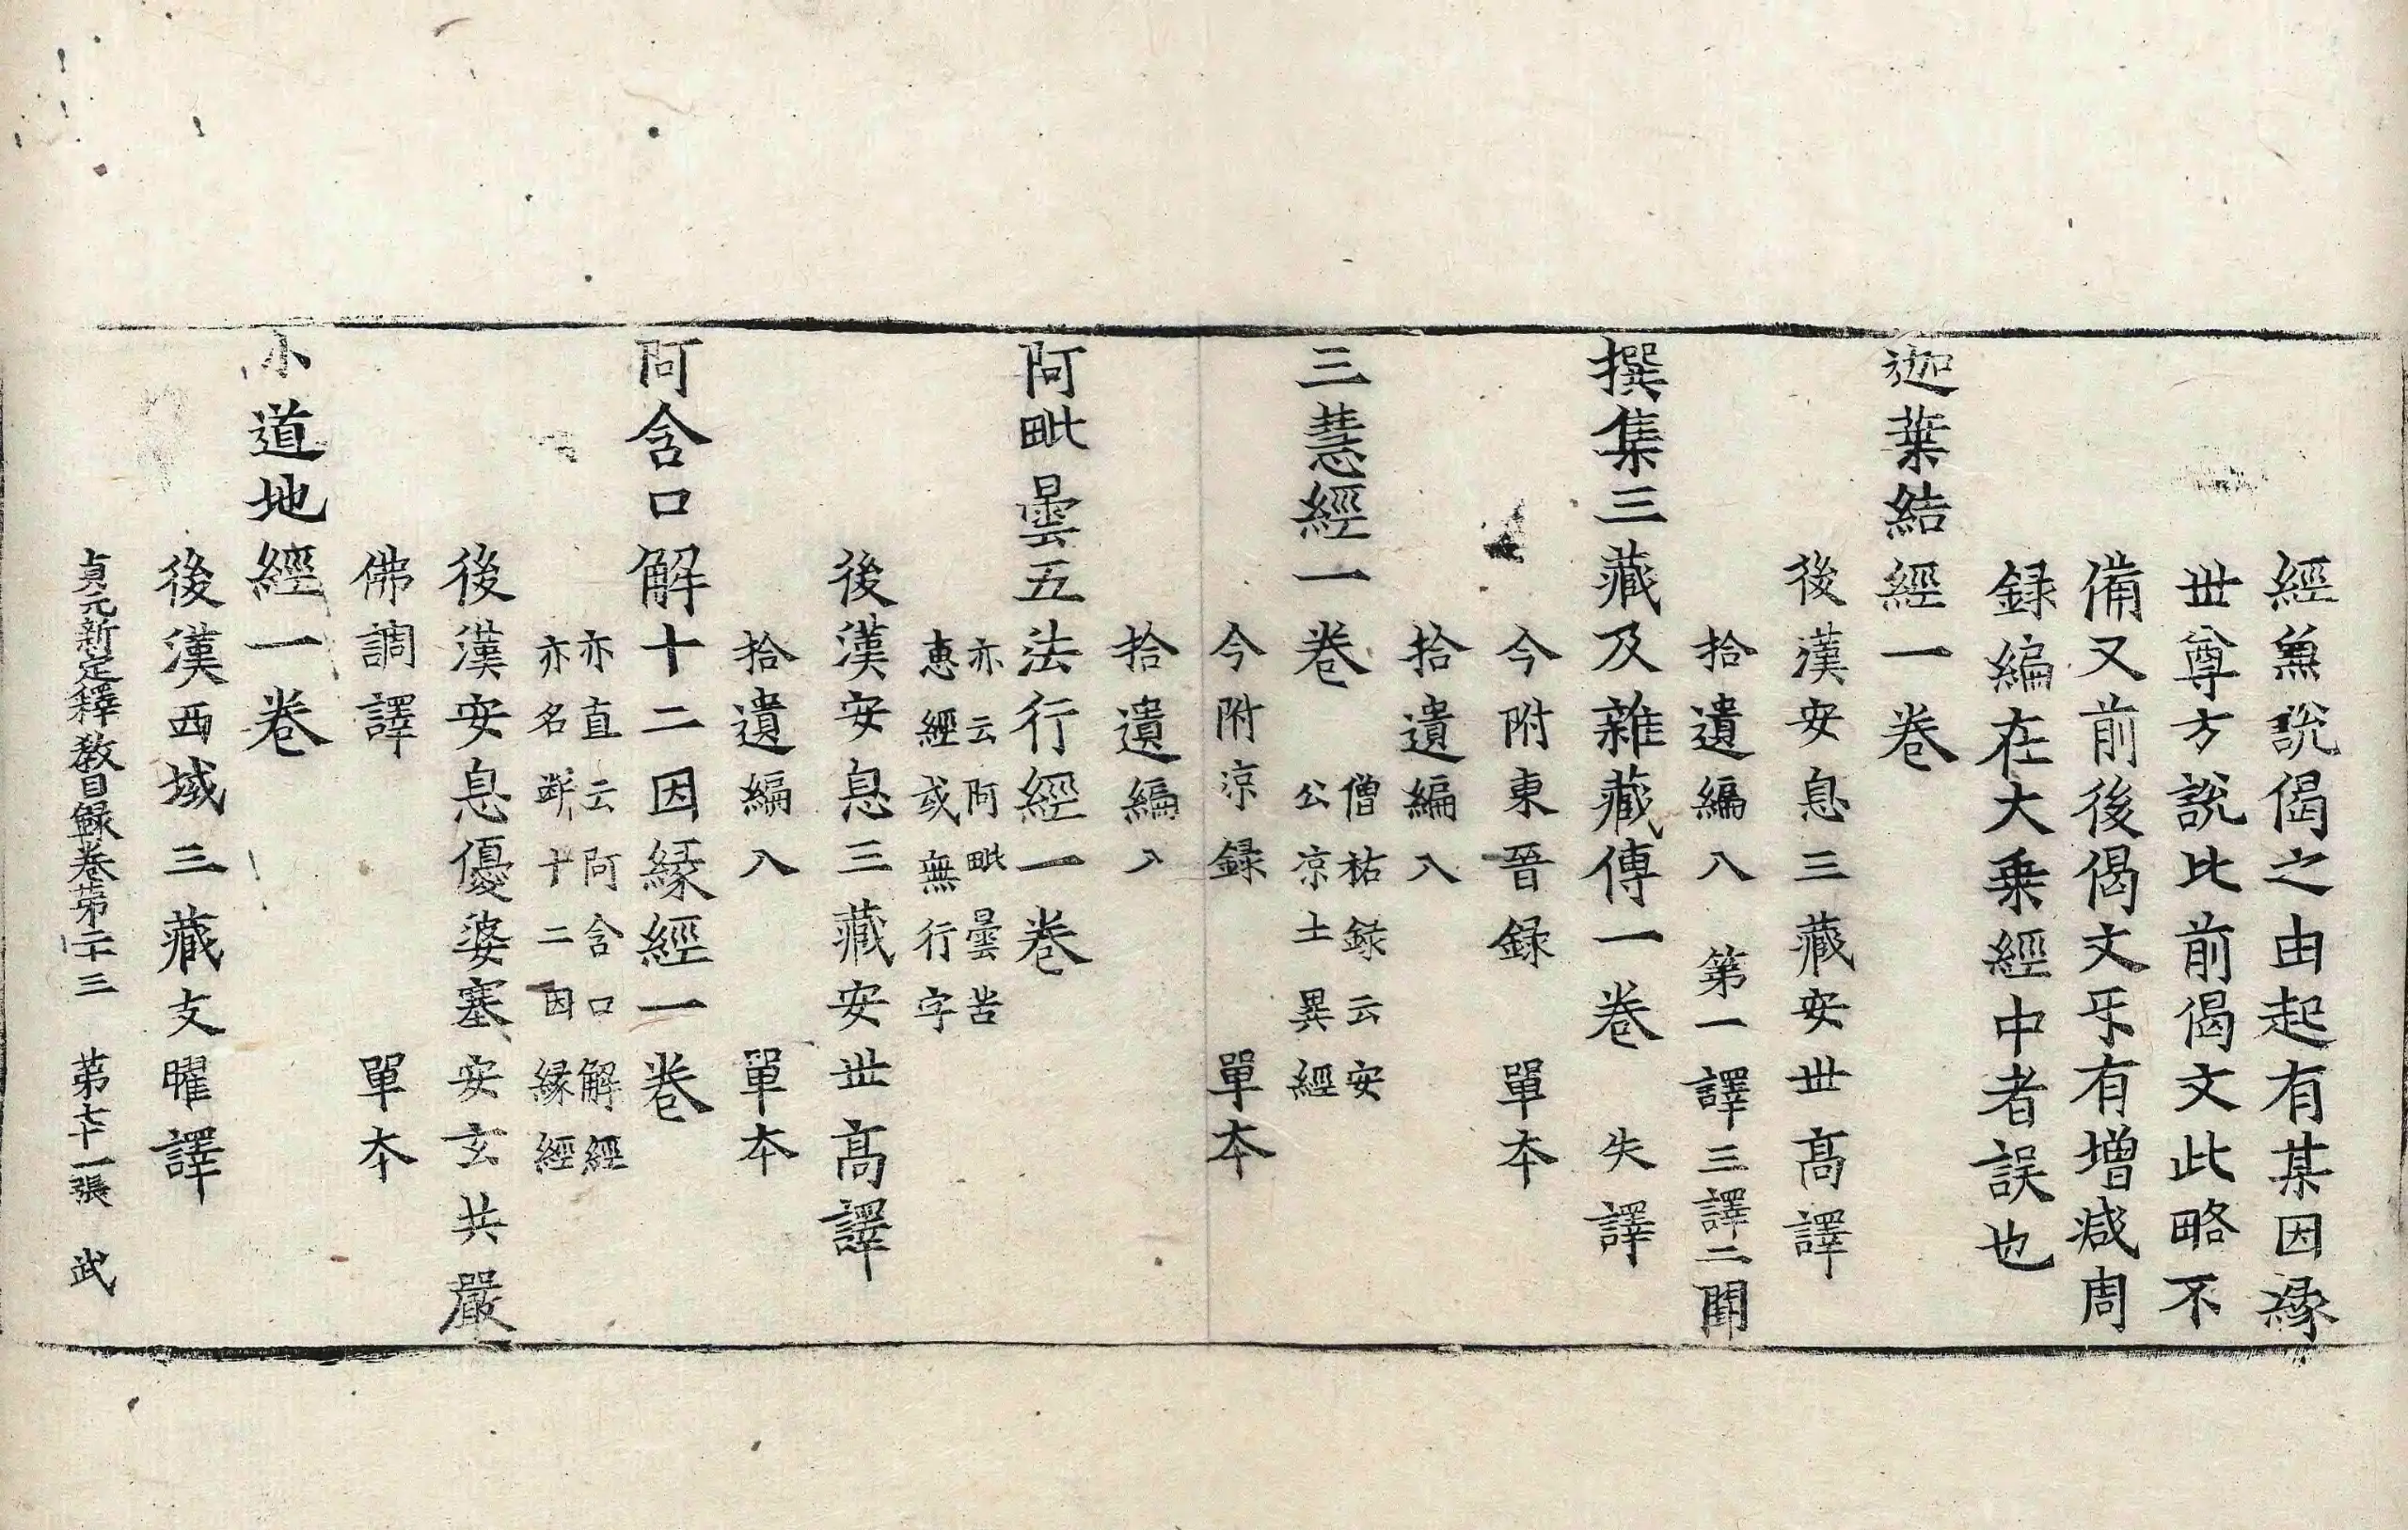 經兼說偈之由起有某因緣
丗尊方說比前偈文此略不
備又前後偈文乐有增減周
録編在大乗經中者誤也
迦葉結經一卷
後漢安息三藏安丗髙譯
拾遺編入 第一譯三譯二闕
撰集三藏及雜藏傳一卷 失譯
今附東晉録 單夲
拾遺編入
三慧經一卷 僧祐録云安
公凉士異經
今附涼録 單夲
拾遺編入
阿毗曇五法行經一卷
亦云阿毗曇苦
恵經或無行字
後漢安息三藏安丗髙譯
拾遺編入 單夲
阿含口解十二因緣經一卷
亦直云阿含口解經
亦名断十二因緣經
後漢安息優婆塞安玄共嚴
佛調譯 單夲
小道地經一卷
後漢西域三藏支曜譯
貞元新定釋教目録卷苐二十三 苐七十一張 武